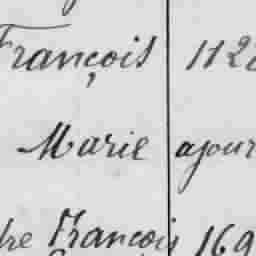 François 112
Marie ajour
François 169